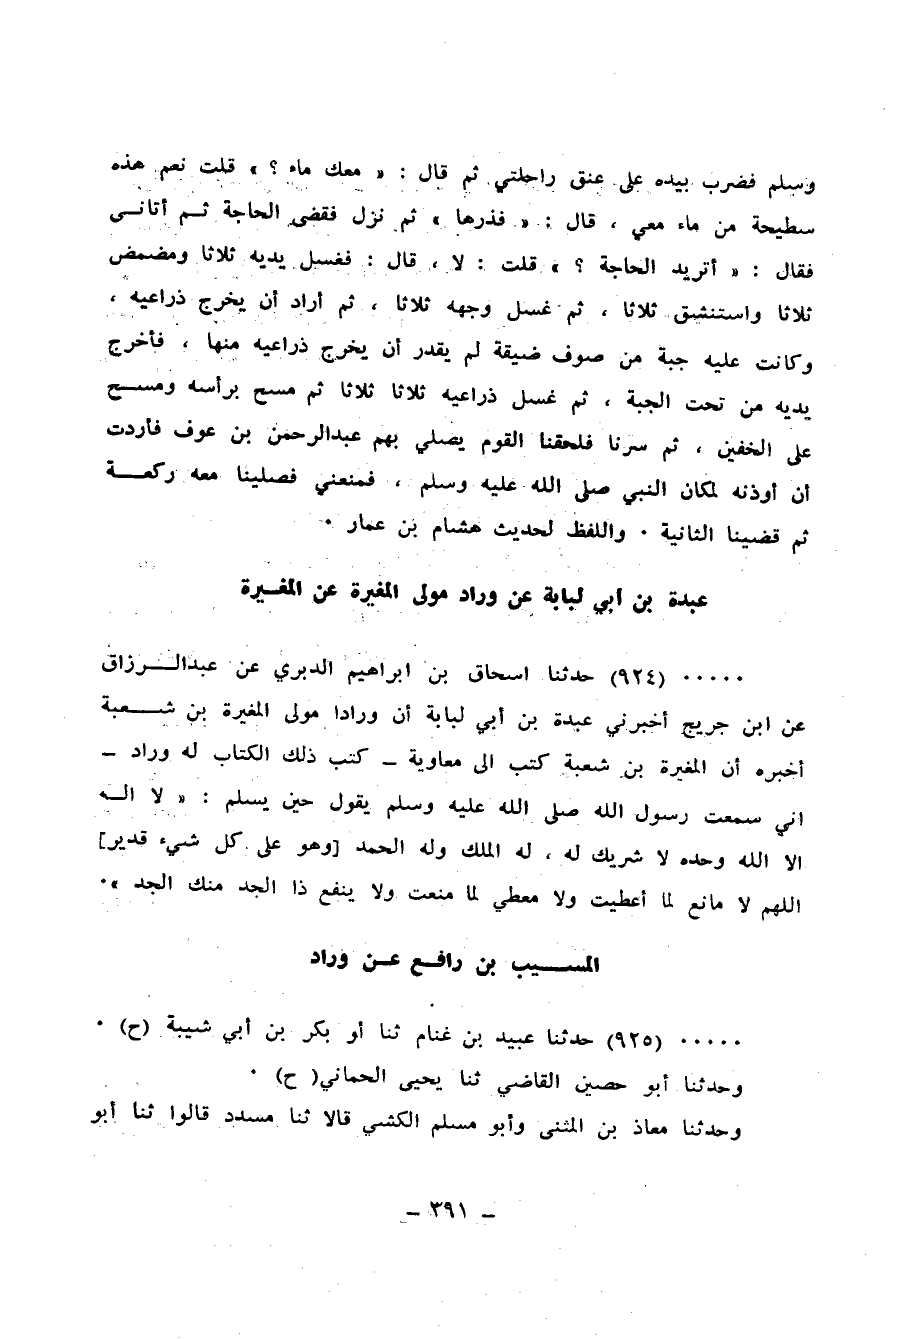 وسلم فضرب بيده على عنق راحلتي ثم قال : « معك ماء ؟ » قلت نعم هذه
سطيحة من ماء معي ، قال : « فذرها » ثم نزل فقضى الحاجة ثم أتاني
فقال : « أتريد الحاجة ؟ » قلت : لا ، قال : فغسل يديه ثلاثا ومضمض
ثلاثا واستنشق ثلاثا ، ثم غسل وجهه ثلاثا ، ثم أراد أن يخرج ذراعيه ،
وكانت عليه جبة من صوف ضيقة لم يقدر أن يخرج ذراعيه منها ، فأخرج
يديه من تحت الجبة ، ثم غسل ذراعيه ثلاثا ثلاثا ثم مسح برأسه ومسح
على الخفين ، ثم سرنا فلحقنا القوم يصلي بهم عبدالرحمن بن عوف فأردت
أن أوذنه لمكان النبي صلى الله عليه وسلم ، فمنعني فصلينا معه ركعة
ثم قضينا الثانية . واللفظ لحديث هشام بن عمار .
عبدة بن أبي لبابة عن وراد مولى المغيرة عن المغيرة
..... (٩٢٤) حدثنا اسحاق بن ابراهيم الدبري عن عبدالرزاق
عن ابن جريج أخبرني عبدة بن أبي لبابة أن ورادا مولى المغيرة بن شعبة
أخبره أن المغيرة بن شعبة كتب الى معاوية - كتب ذلك الكتاب له وراد -
اني سمعت رسول الله صلى الله عليه وسلم يقول حين يسلم : « لا اله
الا الله وحده لا شريك له ، له الملك وله الحمد [وهو على كل شيء قدير]
اللهم لا مانع لما أعطيت ولا معطي لما منعت ولا ينفع ذا الجد منك الجد » .
المسيب بن رافع عن وراد
..... (٩٢٥) حدثنا عبيد بن غنام ثنا أو بكر بن أبي شيبة (ح) .
وحدثنا أبو حصين القاضي ثنا يحيى الحماني( ح) .
وحدثنا معاذ بن المثنى وأبو مسلم الكشي قالا ثنا مسدد قالوا ثنا أبو
- ٣٩١ -